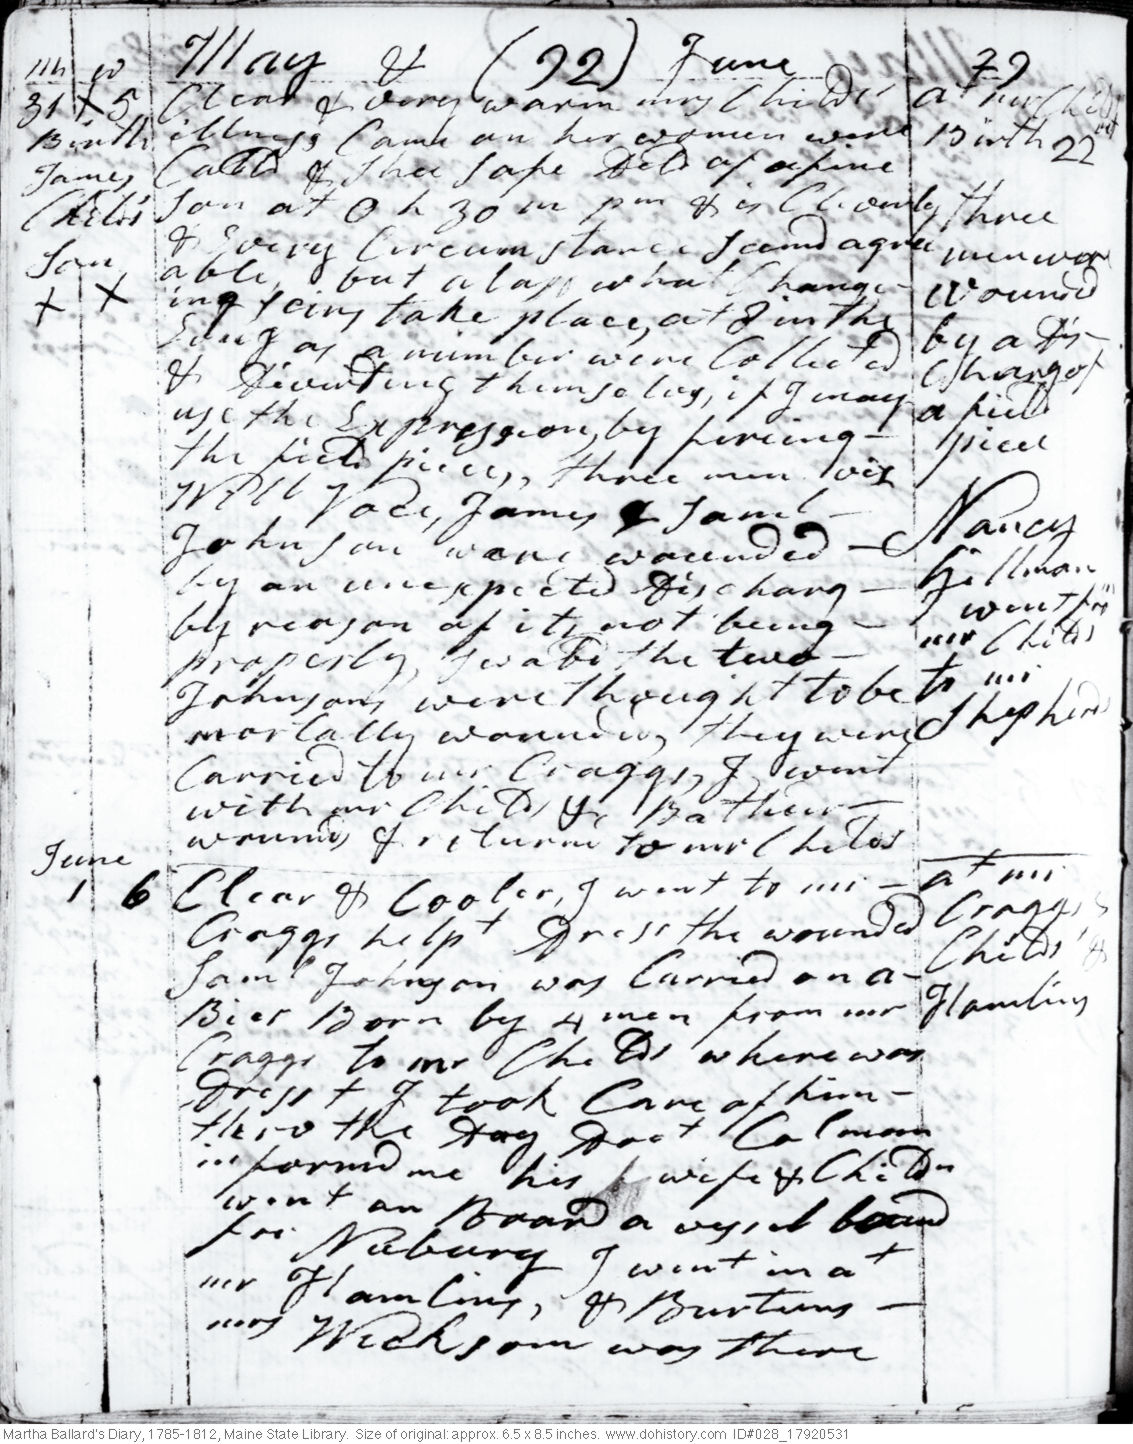 May & (92) June 79
mh w
31 + 5 Clear & very warm mrs Childs'
illness Came on her women were
Calld & Shee safe Deld of a fine
Son at 0 h 30 m pm & is Cleverly
& Every Circumstance Seemd agree
able, but alass what Chang-
ing seins take place, at 8 in the
Evng as a number were Collected
& Diverting themselvs, if I may
use the Expression, by fireing -
the field piece, three men viz
Will Voce, James & Saml -
Johnson were wounded -
by an unexpected Discharg -
by reason of its not being -
properly swabd the two -
Johnsons were thought to be
mortally wounded, they were
Carried to mr Craggs, I went
with mr Childs &c Bath their -
wounds & returnd to mr Childs
Birth
James
Childs
Son
x x
at mr Childs
Birth 22
three
men war
wounded
by a dis-
Charg of
a field
piece
Nancy
Gillman
went from
mr Childs
to mr
Shepherds
June
1 6 Clear & Cooler, I went to mr -
Craggs helpt Dress the wounded
Saml Johnson was Carried on a -
Bier Born by 4 men from mr
Craggs to mr Childs where was
Dresst I took Care of him -
thro the Day Doct Colman
informd me his wife & Childn
went on Board a vessel bound
for Nubury I went in at
mr Hamlins, & Burtuns -
mrs Wicksom was there
at mr
Craggs,
Childs' &
Hamlins
Martha Ballard's Diary, 1785-1812, Maine State Library. Size of original: approx. 6.5 x 8.5 inches. www.dohistory.com ID#028_17920531